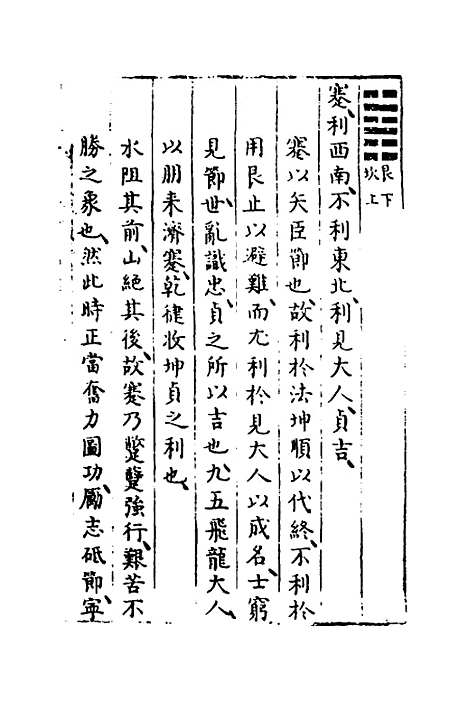 艮下
坎上
蹇、利西南、不利東北、利見大人、貞吉、
蹇以矢臣節也、故利於法坤順以代終、不利於
用艮止以避難、而尤利於見大人以成名、士窮
見節、世亂識忠、貞之所以吉也、九五飛龍大人、
以朋来濟蹇、乾健收坤貞之利也、
水阻其前、山絕其後、故蹇乃蹩躄強行、艱苦不
勝之象也、然此時正當奮力圖功、勵志砥節、寧